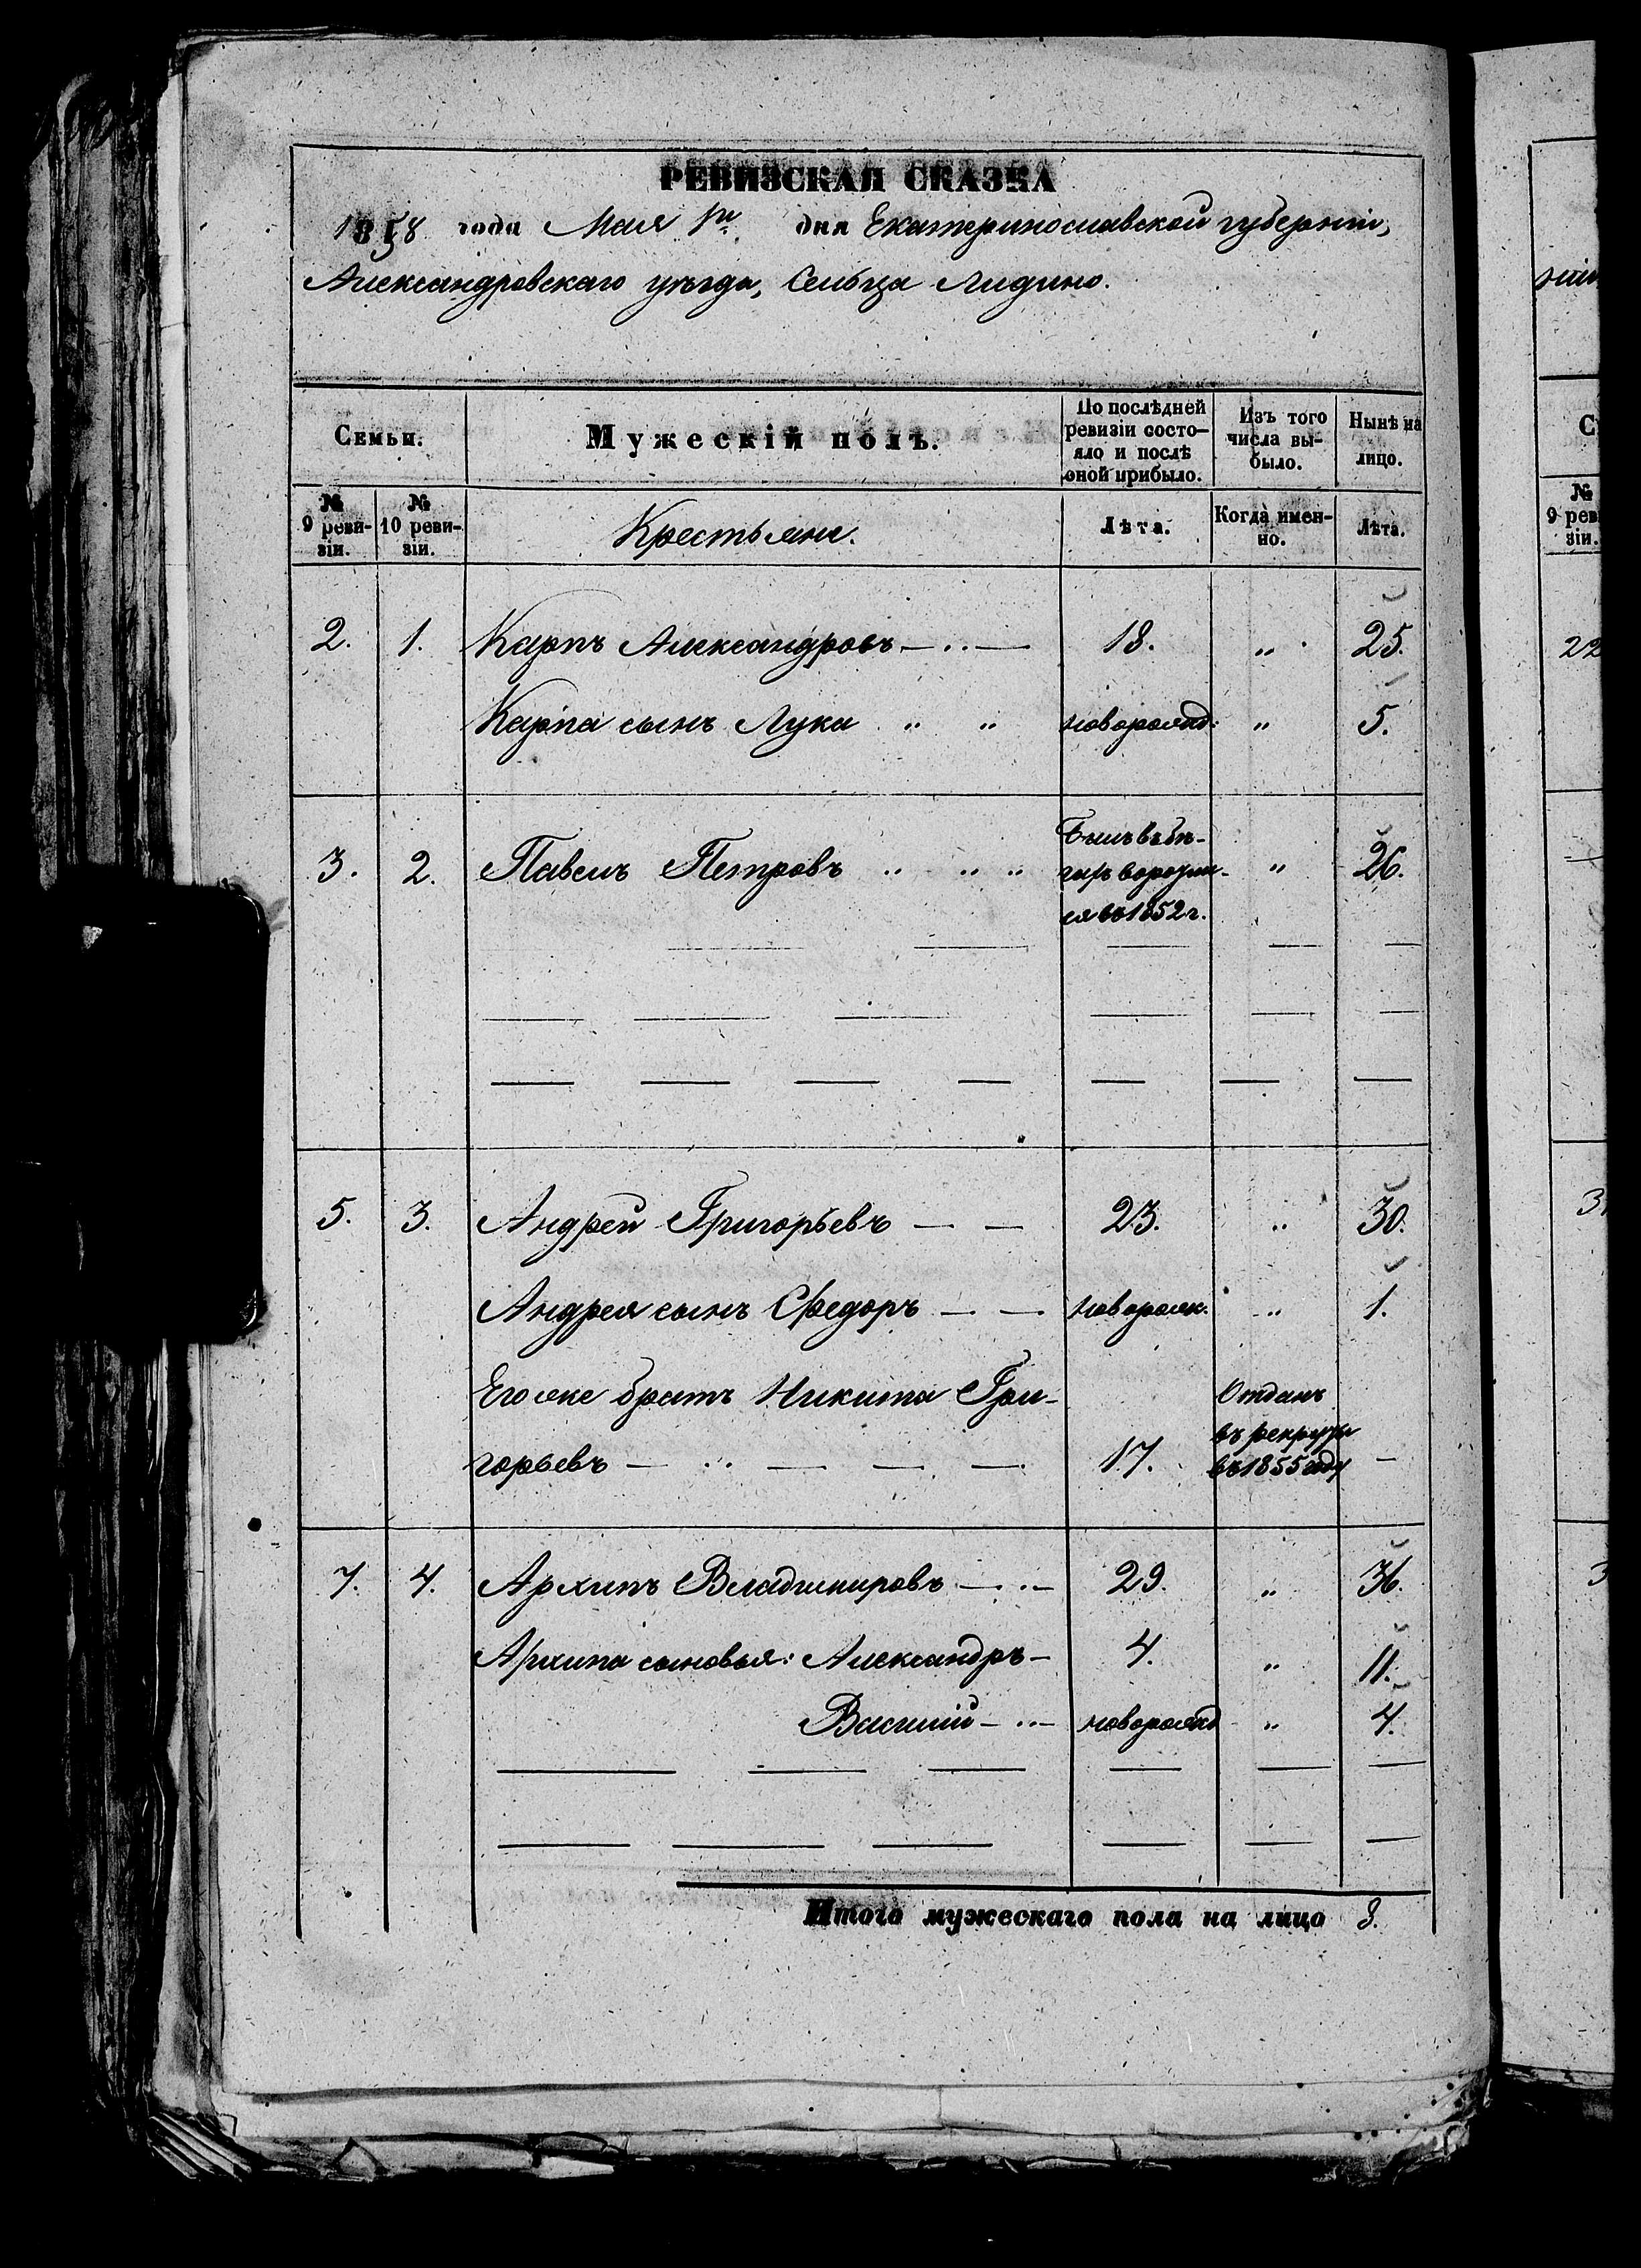 РЕВИЗСКАЯ СКАЗКА
1858 года Мая 1го дня Екатеринославской губерніи,
Александровскаго уѣзда, Сельца Лидино.
Семьи.
Мужескій полъ.
По послѣдней ревизіи состояло и послѣ оной прибыло.
Изъ того числа выбыло.
Нынѣ на лицо.
№ 9 ревизіи.
№ 10 ревизіи.
Крестьяне.
Лѣта.
Когда именно.
Лѣта.
2. 1. Карпъ Александровъ — . . — 18. „ 25.
Карпа сынъ Лука „ „ новорожд: „ 5.
Былъ въ бѣ-
3. 2. Павелъ Петровъ „ „ „ гахъ воротил- „ 26.
ся въ 1852 г.
5. 3. Андрей Григорьевъ — — 23. „ 30.
Андрея сынъ Ѳедоръ — — новорож. „ 1.
Его же братъ Никита Гри- Отданъ
въ рекруты
горьевъ — 17. въ 1855 году —
7. 4. Архипъ Владимировъ — . . — 29. „ 36.
Архипа сыновья: Александръ — 4. „ 11.
Василій — . . — новорожд „ 4.
Итого мужескаго пола на лицо 8.
С
№
9 рев
зіи.
22
3
3